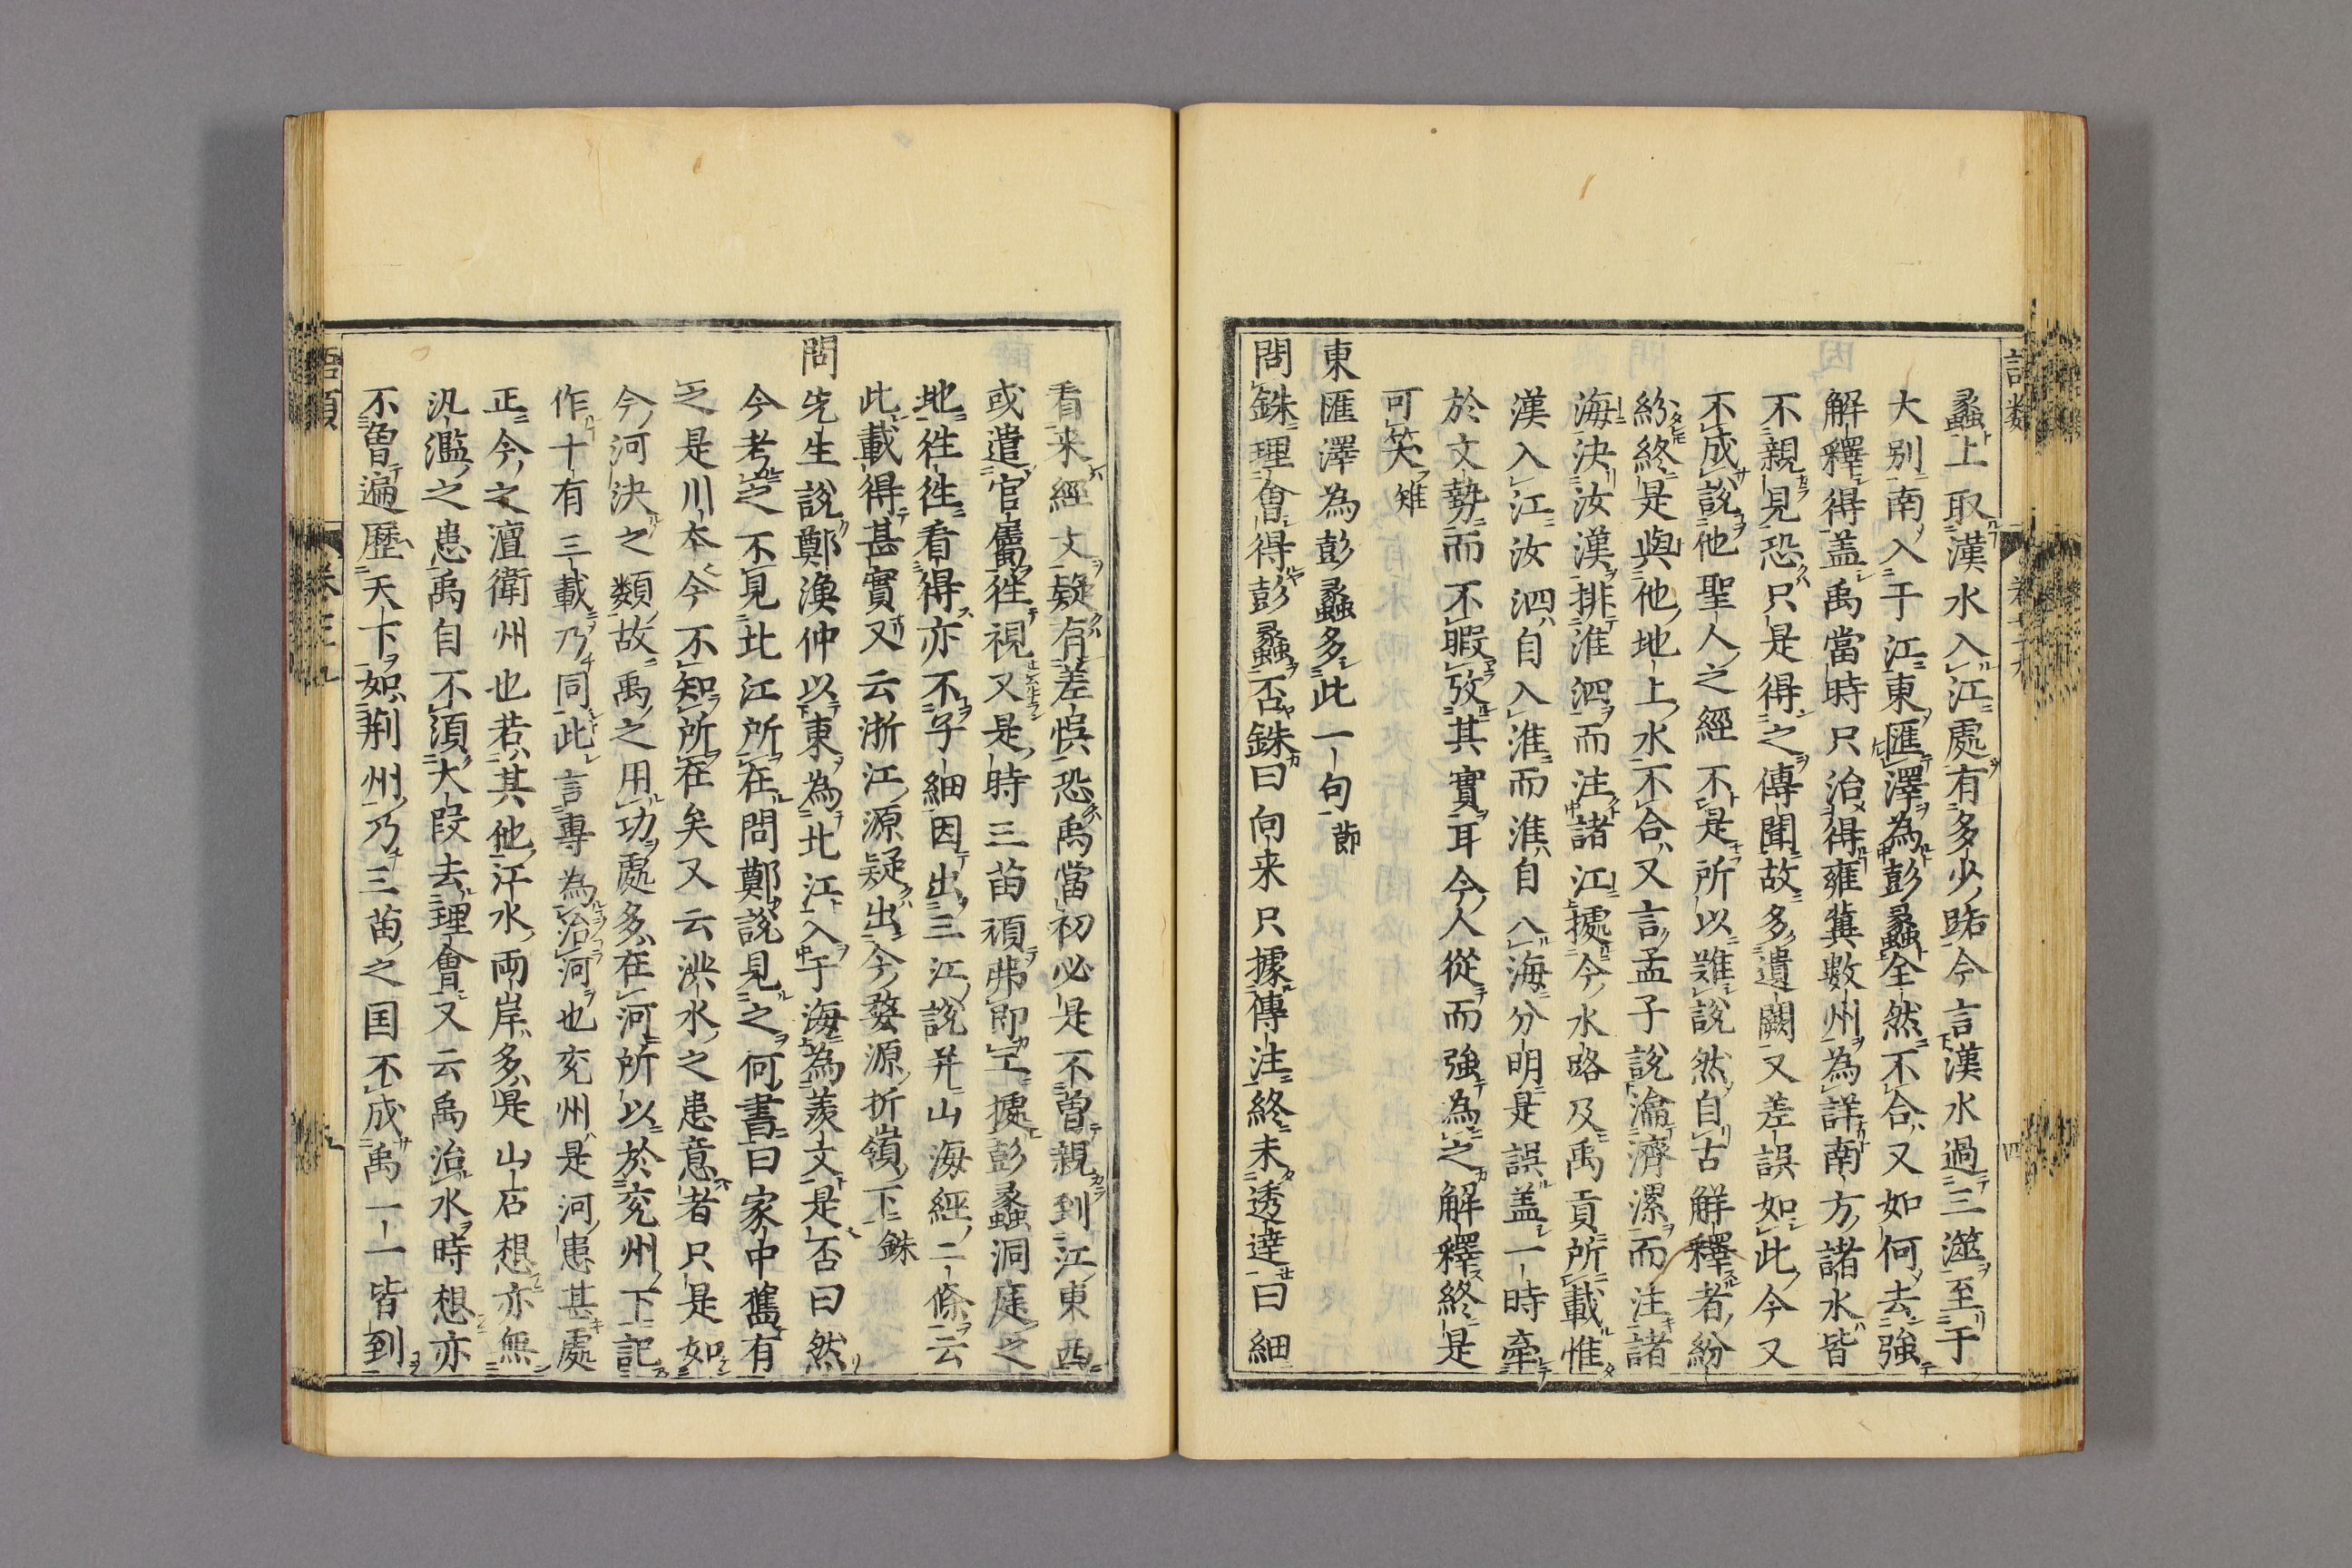 蠡上取漢水入江處有多少路今言漢水過三澨至于
大別南入于江東匯澤為彭蠡全然不合又如何去強
解釋得盖禹當時只治得雍冀數州為詳南方諸水皆
不親見恐只是得之傳聞故多遺闕又差誤如此今又
不成說他聖人之經不是所以難說然自古觧釋者紛
紛終是與他地上水不合又言孟子說瀹濟漯而注諸
海決汝漢排淮泗而注諸江據今水路及禹貢所載惟
漢入江汝泗自入淮而淮自入海分明是誤盖一時牽
於文勢而不暇攷其實耳今人從而強為之解釋終是
可笑雉
東匯澤為彭蠡多此一句節
問銖理會得彭蠡否銖曰向来只據傳注終未透達曰細
看来經文疑有差悞恐禹當初必是不曽親到江東西
或遣官屬徃視又是時三苗頑弗即工據彭蠡洞庭之
地徃徃看得亦不子細因出三江說并山海經二條云
此載得甚實又云浙江源疑出今婺源折嶺下銖
問先生說鄭漁仲以東為北江入于海為羨文是否曰然
今考之不見北江所在問鄭說見之何書曰家中舊有
之是川本今不知所在矣又云洪水之患意者只是如
今河決之類故禹之用功處多在河所以於兖州下記
作十有三載乃同此言專為治河也兖州是河患甚處
正今之澶衛州也若其他江水兩岸多是山石想亦無
汎濫之患禹自不須大段去理會又云禹治水時想亦
不曽遍歷天下如荆州乃三苗之国不成禹一一皆到